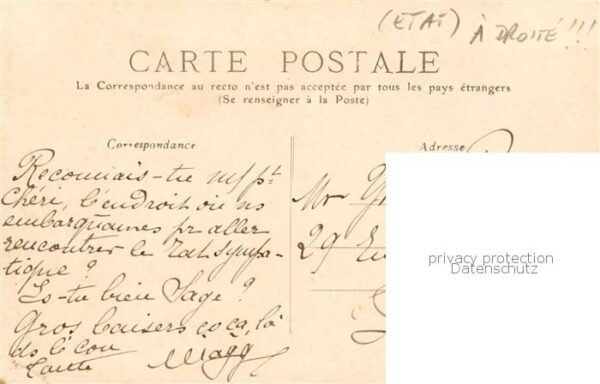 (ETAT) À DROITE !!!
CARTE POSTALE
La Correspondance au recto n'est pas acceptée par tous les pays étrangers
(Se renseigner à la Poste)
Correspondance
Adresse
Reconnais-tu
chéri, l'endroit où ns
embarquames pr aller
rencontrer le Zat sympa-
tique ?
Es-tu bien sage ?
Gros baisers là
ds l' cou
Mr
29
privacy protection
Datenschutz